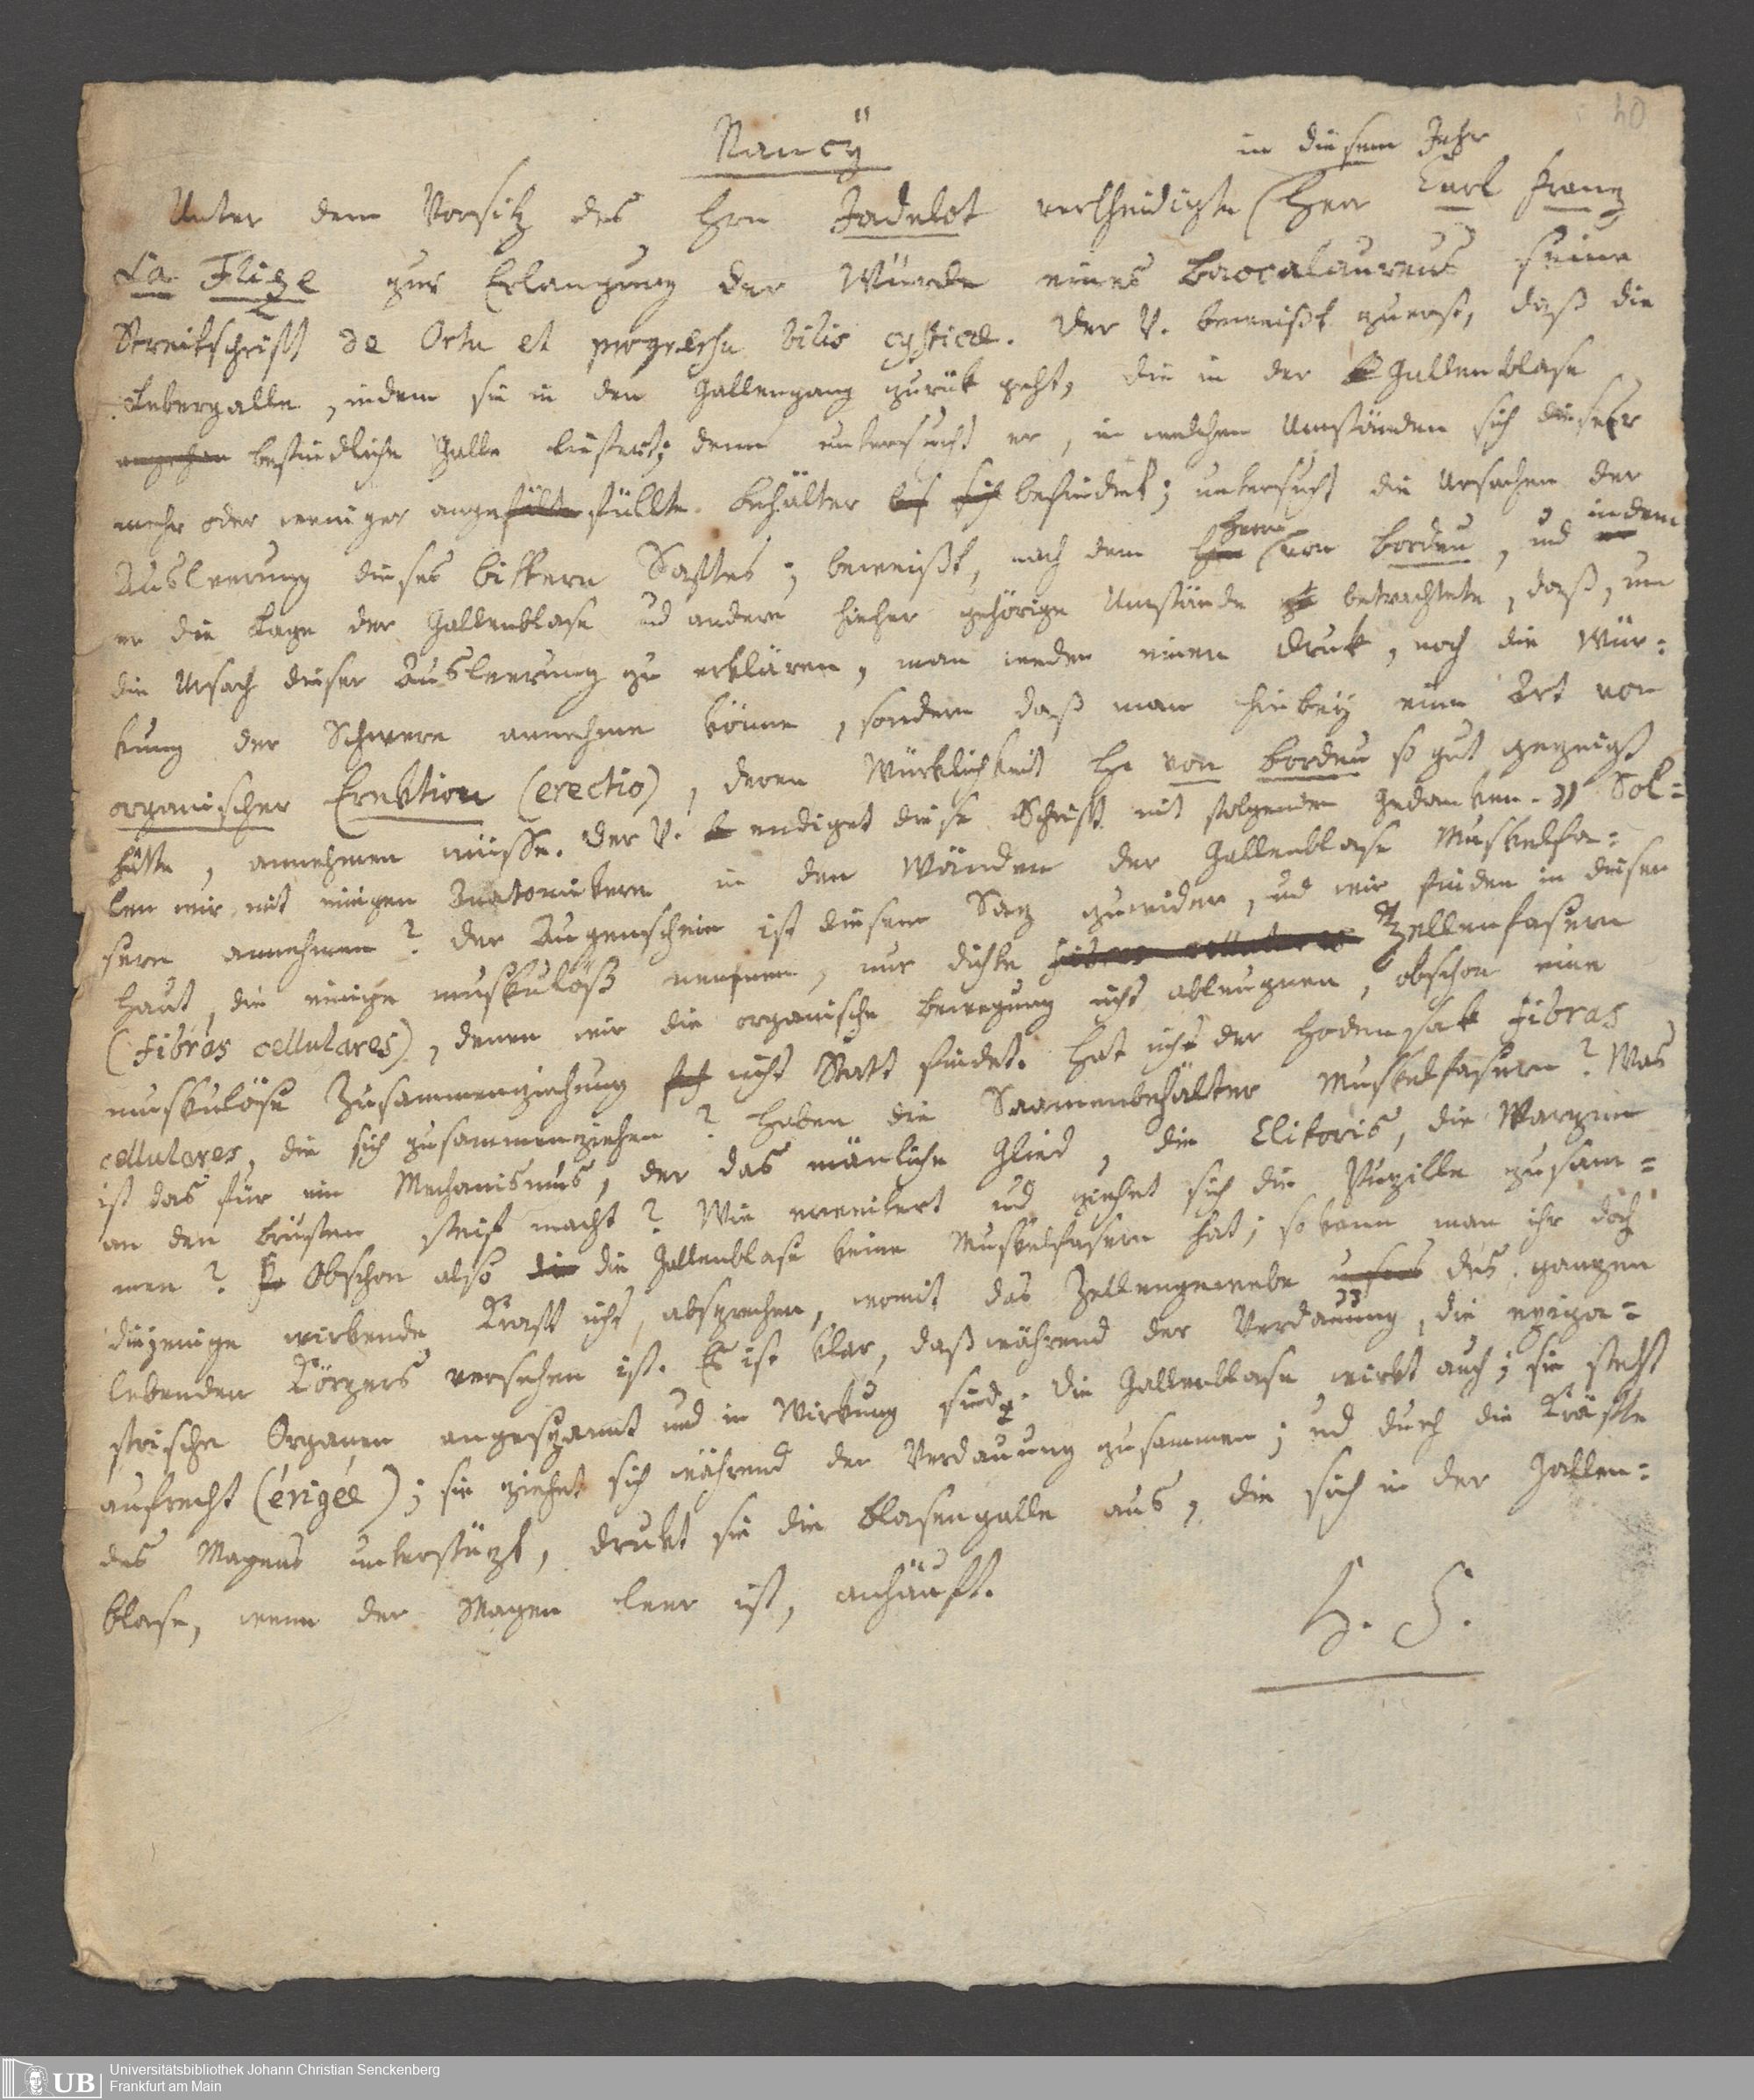 40
Nancÿ
in diesem Jahr
Unter dem Vorsitz des Hrn Jadelot vertheidigte Herr Carl Franz
La Flize zur Erlangung der Würde eines Baccalaureus seine
Streitschrifft de Ortu et progressu bilis cysticæ. Der V. beweißt zuerst, daß die
Lebergalle, indem sie in den Gallengang zurük geht, die in der Gallenblase
befindliche Galle liefert; denn untersucht er, in welchen Umständen sich dieser
mehr oder weniger angefüllte Behälter befindet; untersucht die Ursachen der
Ausleerung dieses bittern Saftes; beweißt, nach dem Herrn von Bordeu, und indem
er die Lage der Gallenblase und andere hieher gehörige Umstände betrachtete, daß, um
die Ursach dieser Ausleerung zu erklären, man weder einen Druk, noch die Wür=
kung der Schwere annehmen könne, sondern daß man hiebeÿ eine Art von
organischer Erektion (erectio), deren Würklichkeit Hr von Bordeu so gut gezeigt
hätte, annehmen müsse. Der V. endiget diese Schrifft mit folgenden Gedanken. „Sol=
len wir mit einigen Anatomikern in den Wänden der Gallenblase Muskelfa=
sern annehmen? Der Augenschein ist diesem Saz zuwider, und wir finden in dieser
Haut, die einige muskulöß nennen, nur dichte Zellenfasern
(fibras cellulares), denen wir die organische Bewegung nicht ableugnen, obschon eine
muskulöse Zusammenziehung nicht Statt findet. Hat nicht der Hodensak fibras
cellulares, die sich zusammenziehen? Haben die Saamenbehälter Muskelfasern? Was
ist das für ein Mechanismus, der das mänliche Glied, die Clitoris, die Warzen
an den Brüsten steif macht? Wie erweitert und ziehet sich die Pupille zusam=
men? Obschon also die Gallenblase keine Muskelfasern hat; so kann man ihr doch
diejenige wirkende Krafft nicht absprechen, womit das Zellengewebe des ganzen
lebenden Körpers versehen ist. Es ist klar, daß während der Verdauung, die epiga=
strischen Organen angespannt und in Wirkung sind. Die Gallenblase wirkt auch; sie steht
aufrecht (érigée); sie ziehet sich während der Verdauung zusammen; und durch die Kräfte
des Magens unterstüzt, drukt sie die Blasengalle aus, die sich in der Gallen=
blase, wenn der Magen leer ist, anhäuft.
H. S.
UB Universitätsbibliothek Johann Christian Senckenberg
Frankfurt am Main